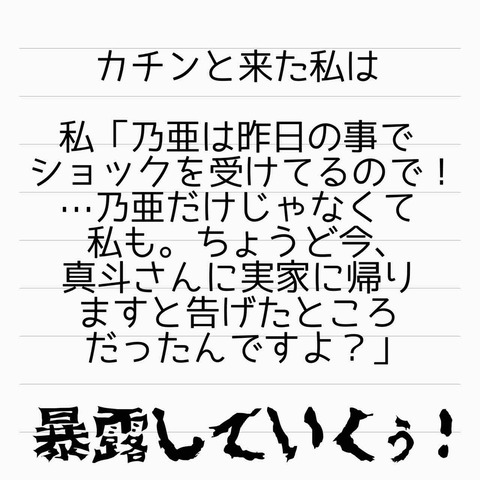 カチンと来た私は
私「乃亜は昨日の事で
ショックを受けてるので！
…乃亜だけじゃなくて
私も。ちょうど今、
真斗さんに実家に帰り
ますと告げたところ
だったんですよ？」
暴露していくぅ！